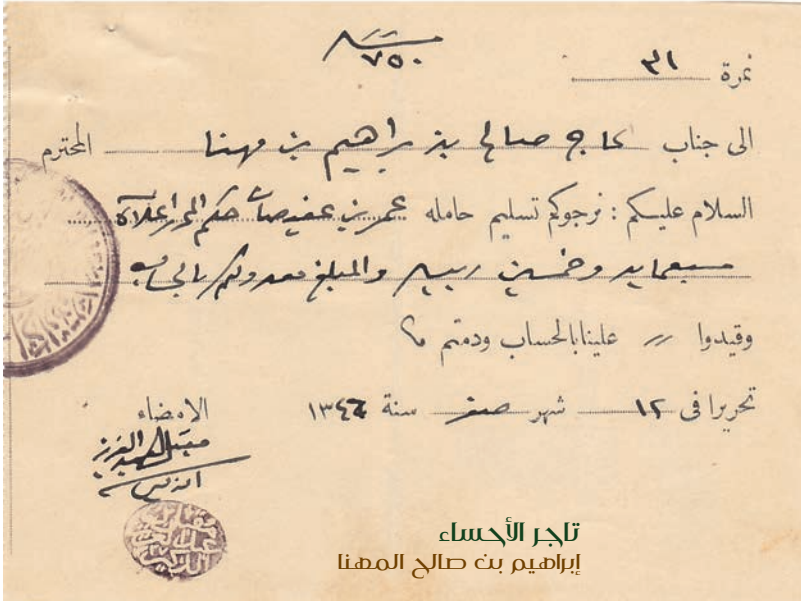 ٧٥٠
نمرة ٣١
الى جناب الحاج صالح بن براهيم بن مهنا المحترم
السلام عليكم : نرجوكم تسليم حامله عمر بن عفيصان حكم المحرر اعلاه
سبعماية وخمسين ربيه والمبلغ
وقيدوا علينا بالحساب ودمتم
تحريرا فى ١٢ شهر صفر سنة ١٣٤
الامضاء
العبد العزيز
الذكير
تاجر الأحساء
إبراهيم بن صالح المهنا